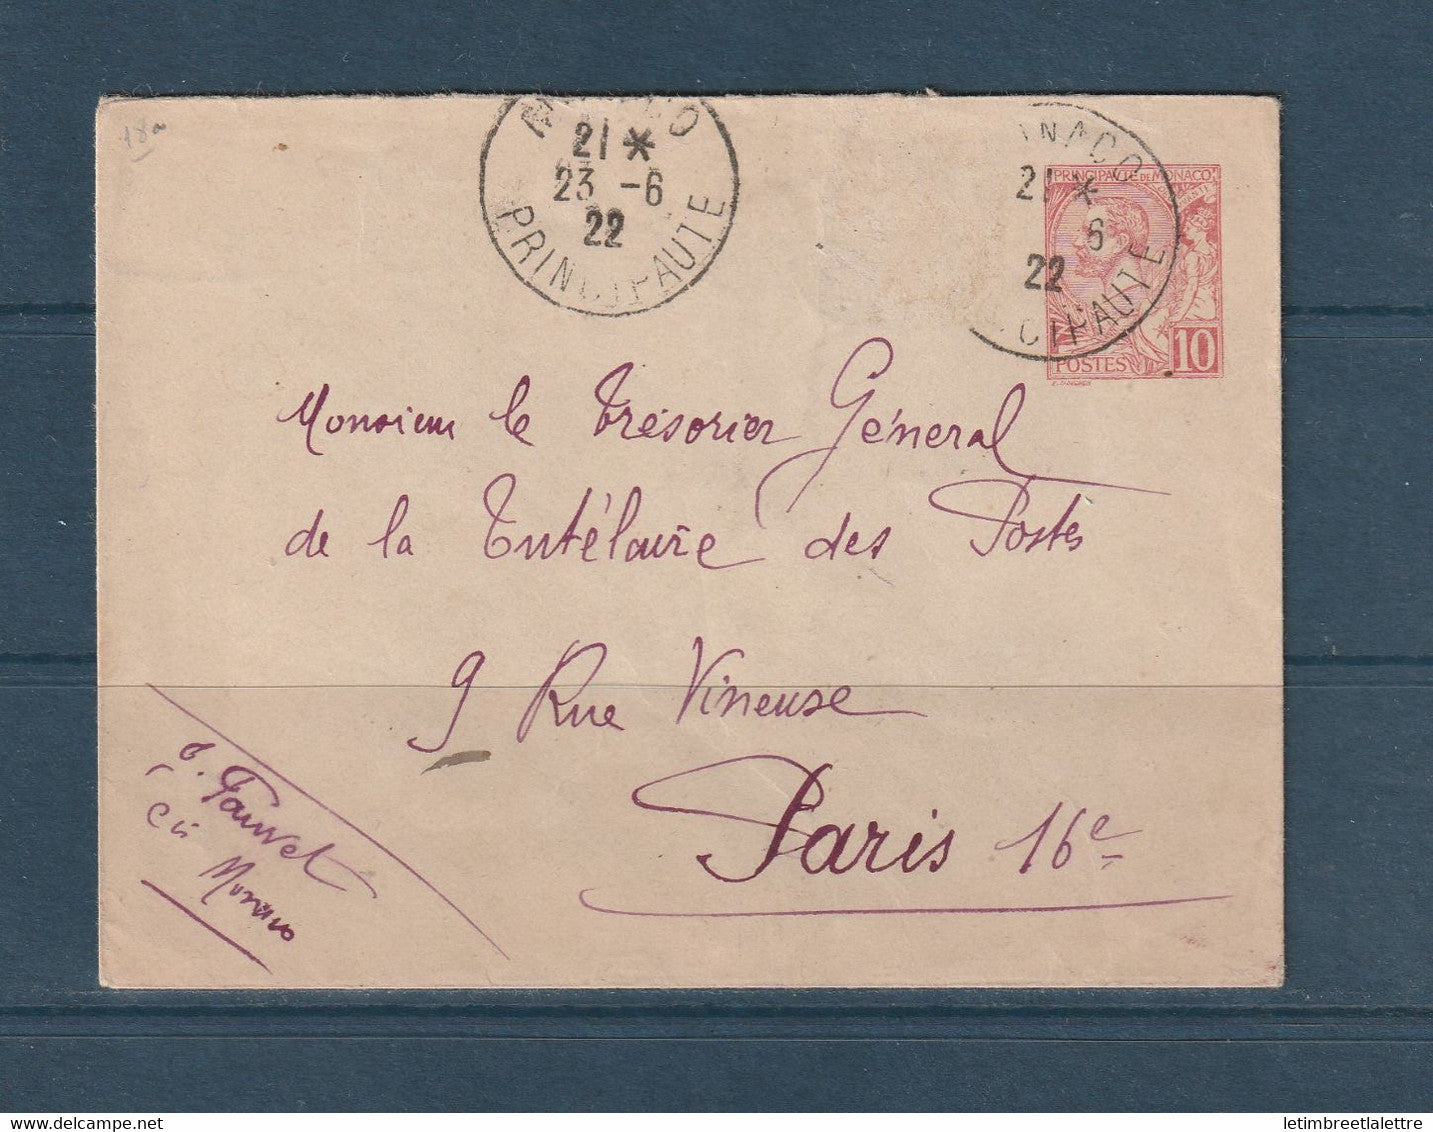 18a
MONACO
21 *
23 -6
22
PRINCIPAUTE
NACO
21 *
6
22
CIPAUTE
PRINCIPAUTÉ DE MONACO
POSTES 10
Monsieur le Trésorier Général
de la Tutélaire des Postes
9 Rue Vineuse
Paris 16e
Fauvet
Monaco
letimbreetlalettre